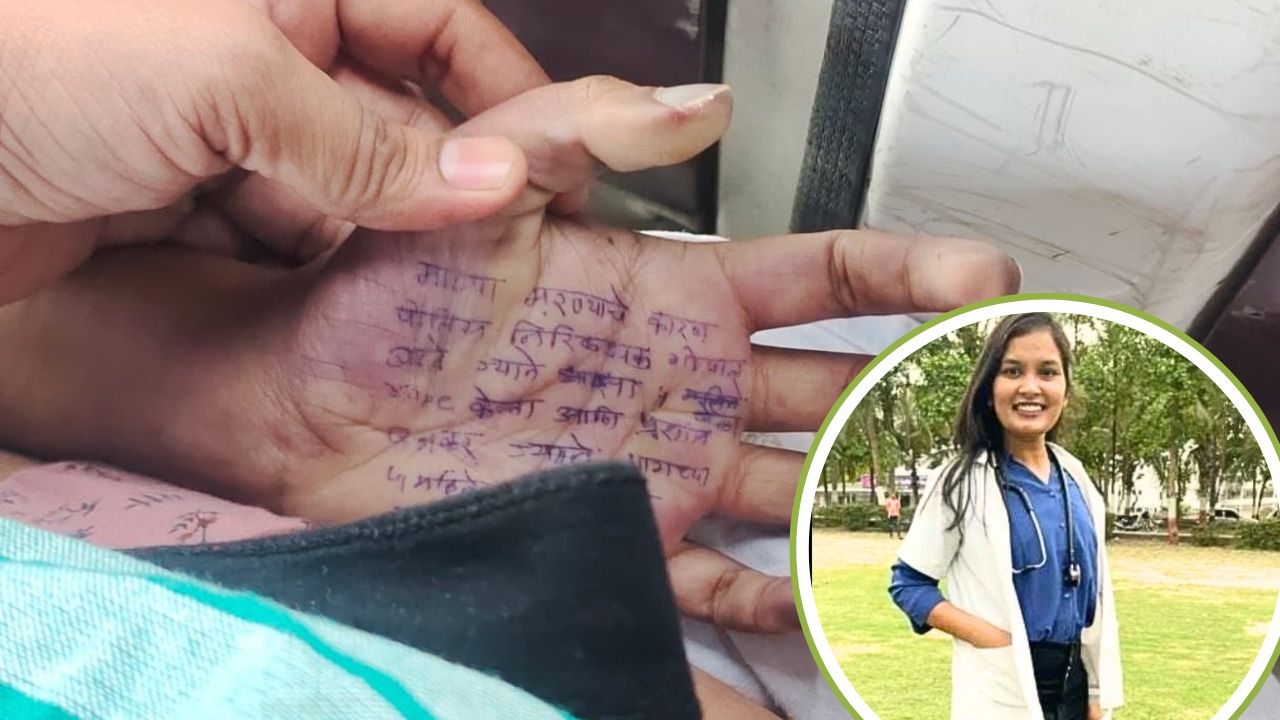 माझ्या मरण्याचे कारण
पोलिस निरिक्षक गोपाल
बदने ज्याने माझा ४
rape केला आणि प्रशांत
बनकर ज्याने मागच्या
५ महिने